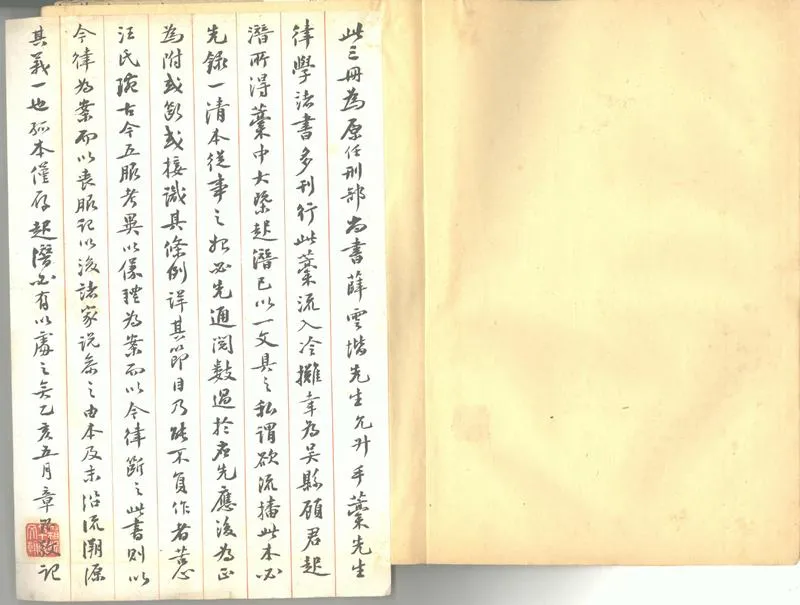 此三冊為原任刑部尚書薛雲堦先生允升手藁先生
律學諸書多刊行此藁流入冷攤幸為吳縣顧君起
潛所得藁中大槩起潛已以一文具之私謂欲流播此本必
先錄一清本從事之始必先通閱數過於應先應後為正
為附或斷或接識其條例詳其節目乃能不負作者苦心
汪氏琬古今五服考異以儀禮為案而以今律斷之此書則以
今律為案而以喪服記以後諸家說參之由本及末沿流溯源
其義一也孤本僅存起潛必有以處之矣乙亥五月章鈺記